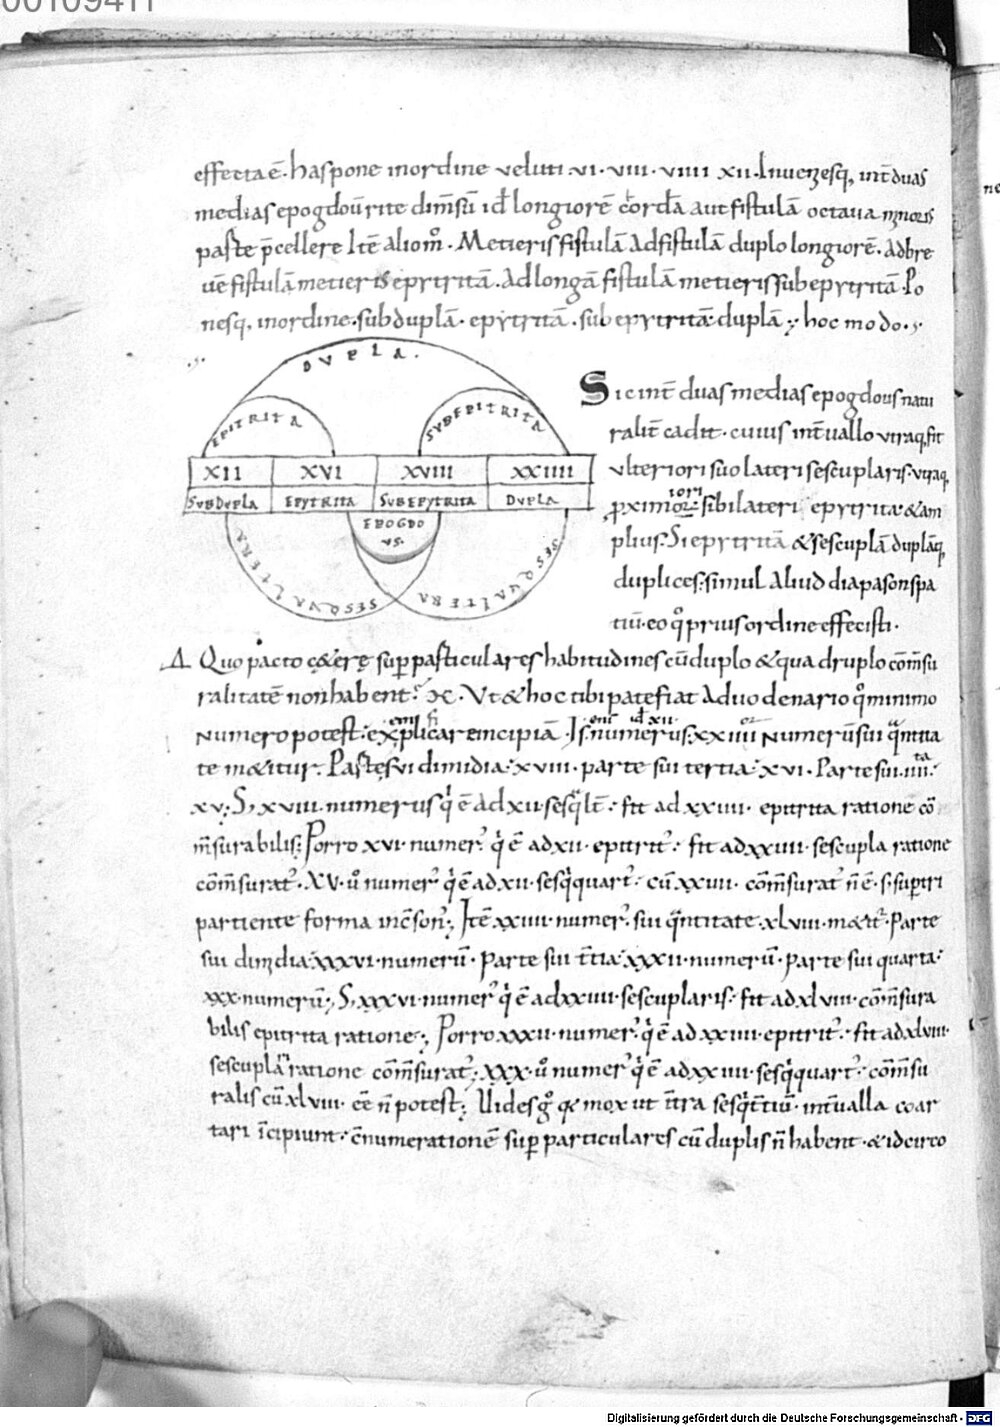 00109411
effecta ē. has pone inordine veluti ·vi· viii· viiii xii· Invenies q, int̄ duas
medias epogdoū rite dim̄sū id longiorē cordā aut fistulā octava minoris
parte p̄cellere
Metieris fistulā ad fistulā duplo longiorē. ad bre
uē fistulā metieris epytritā. ad longā fistulā metieris subepytritā. Po
nesq, inordine. subduplā. epytritā. subepytritā duplā; hoc modo.
DUPLA.
EPITRITA
SUBEPITRITA
XII XVI XVIII XXIIII
SUBDUPLA EPYTRITA SUBEPYTRITA DUPLA
EPOGDO
US.
SESQUALTERA
SESQUALTERA
Sic int̄ duas medias epogdous natu
ralit̄ cadit. cuius int̄uallo utraq, fit
ulteriori suo lateri sescuplaris. utraq,
iori
p̱ximor sibi lateri epytrita. & am
plius. Si epytritā & sescuplā duplāq,
duplices. simul aliud diapason spa
tiū. eo q̊ prius ordine effecisti.
Δ Quo pacto cęterę sup̱particulares habitudines cū duplo & quadruplo com̄su
ralitatē non habent. Ut & hoc tibi patefiat a duodenario q̊ minimo
numero potest. explicare incipiā. Is numerus. xxiiii numerū sui q̄ntita
te mætitur. Partē sui dimidia. xviii. parte sui tertia. xvi. Parte sui iiii.ta
xv; S, xviii. numerus q̇ ē ad xii. sesq̄lt̄. fit ad xxiiii. epitrita ratione cō
m̄surabilis; Porro xvi. numer᾿ q̇ ē ad xii. epitrit᾿. fit ad xxiiii. sescupla ratione
com̄surat᾿. XV. ů numer᾿ q̇ ē ad xii. sesq̇quart᾿. cū xxiiii. com̄surat᾿ n̄ ē. s. sup̱tri
partiente forma inc̄son᾿; Itē xxiiii. numer᾿. sui q̄ntitate xlviii. mætit᾿. Parte
sui dimidia. xxxvi. numerū. parte sui t̄tia. xxxii. numerū. parte sui quarta.
xxx. numerū; S, xxxvi. numer᾿ q̇ ē ad xxiiii. sescuplaris. fit ad xlviii. com̄sura
bilis epitrita ratione; Porro xxxii. numer᾿. q̇ ē ad xxiiii. epitrit᾿. fit ad xlviii.
sescuplari ratione com̄surat᾿; xxx. ů numer᾿ q̇ ē ad xxiiii. sesq̇quart᾿. com̄su
ralis cū xlviii. eē n̄ potest; Uides g̊ q̨ mox ut n̄tra sesq̇t̄tiū. int̄ualla coar
tari īcipiunt. ēnumerationē sup̱particulares cū duplis n̄ habent. & idcirco
Digitalisierung gefördert durch die Deutsche Forschungsgemeinschaft - DFG